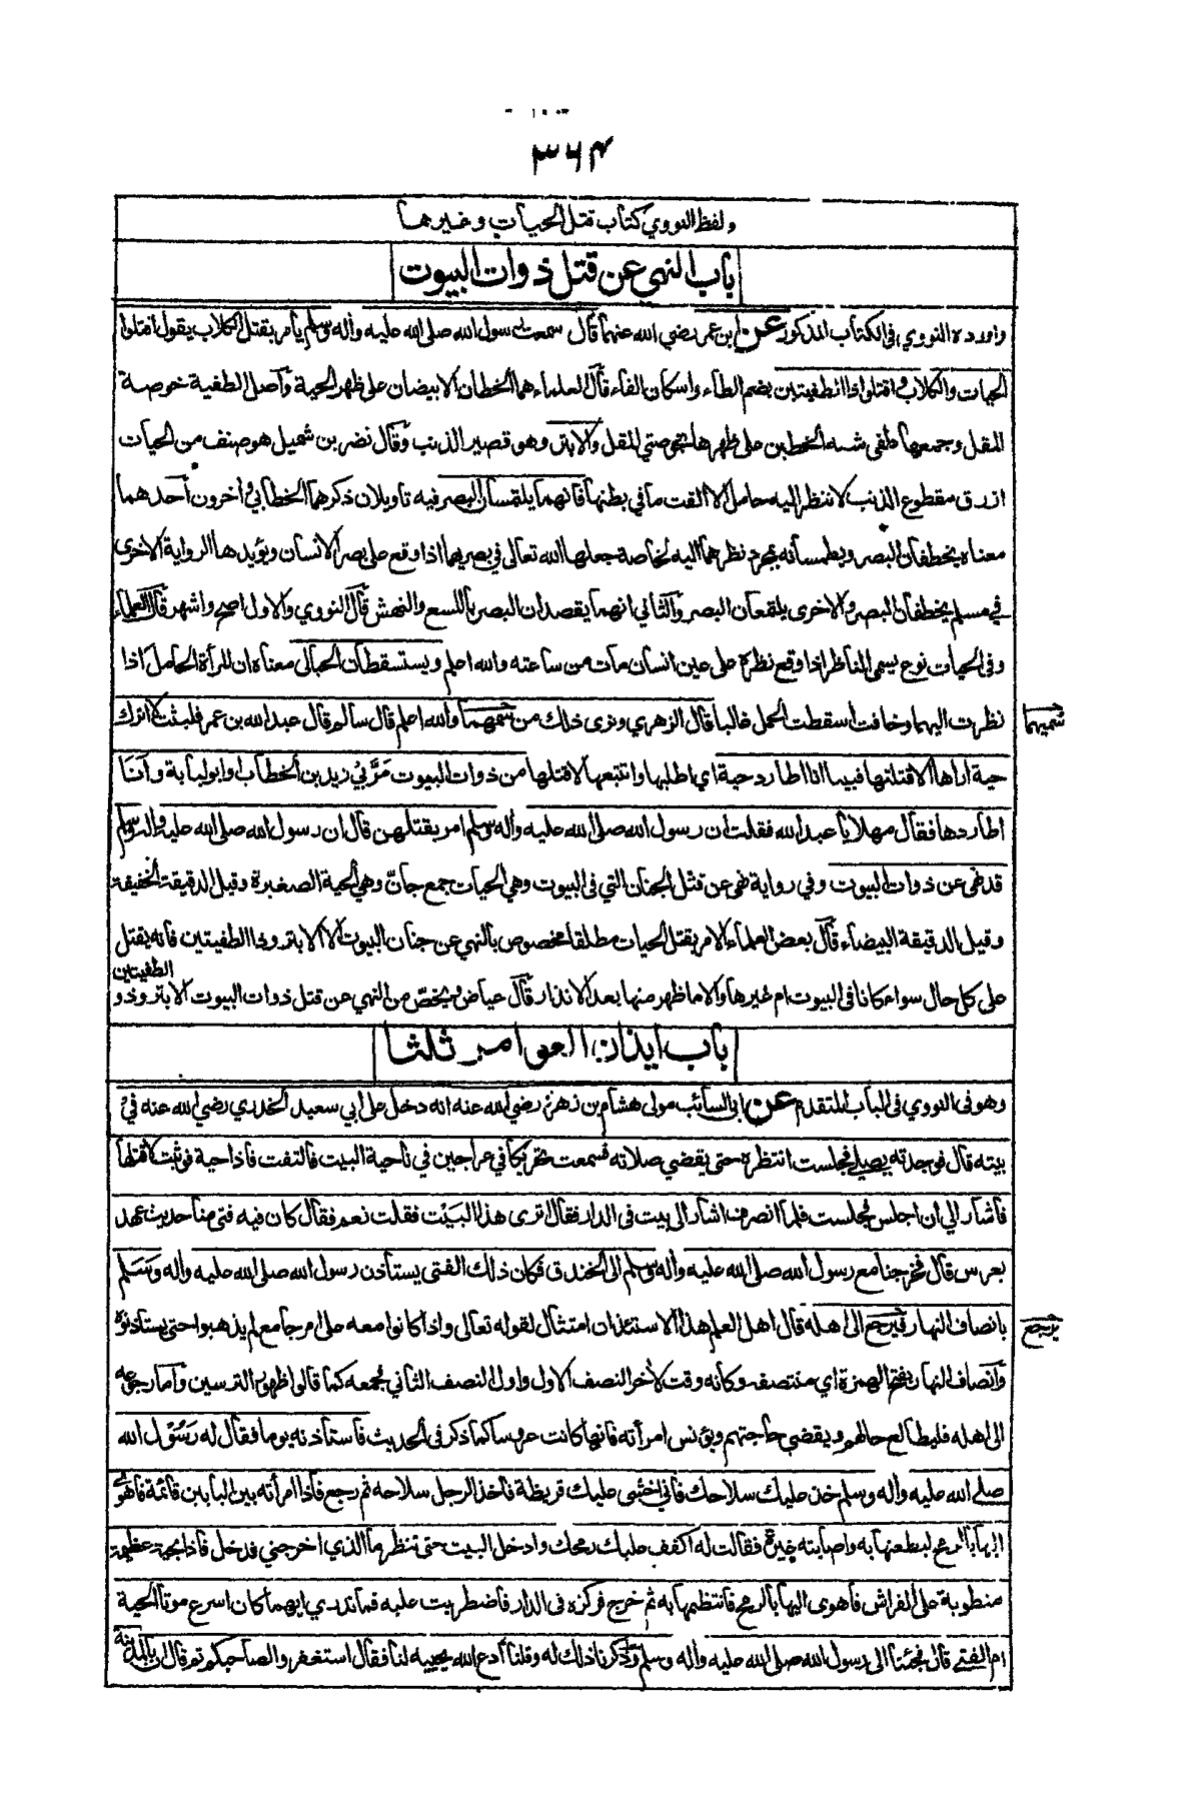 ٣٦٤
ولفظ النووي كتاب قتل الحيات وغيرها
باب النهي عن قتل ذوات البيوت
واورده النووي في الكتاب المذكور عن ابن عمر رضي الله عنهما قال سمعت رسول الله صلى الله عليه واله وسلم يأمر بقتل الكلاب يقول اقتلوا
الحيات والكلاب واقتلوا ذا الطفيتين بضم الطاء واسكان الفاء قال العلماء هما الخطان الابيضان على ظهر الحية واصل الطفية خوصة
المقل وجمعها طفى شبه الخطين على ظهرها بخوصتي المقل والابتر وهو قصير الذنب وقال نضر بن شميل هو صنف من الحيات
ازرق مقطوع الذنب لا تنظر اليه حامل الا القت ما في بطنها فانهما يلتمسان البصر فيه تاويلان ذكرهما الخطابي واخرون احدهما
معناه يخطفان البصر ويطمسانه بمجرد نظرهما اليه لخاصة جعلها الله تعالى في بصريهما اذا وقع على بصر الانسان ويؤيد هذا الرواية الاخرى
في مسلم يخطفان البصر والاخرى يلتمعان البصر والثاني انهما يقصدان البصر باللسع والنهش قال النووي والاول اصح واشهر قال العلماء
وفي الحيات نوع يسمى الناظر اذا وقع نظره على عين انسان مات من ساعته والله اعلم ويستسقطان الحبالى معناه ان المرأة الحامل اذا
نظرت اليهما وخافت اسقطت الحمل غالبا قال الزهري ونرى ذلك من سمهما والله اعلم قال سالم قال عبد الله بن عمر فلبثت لا اترك
سميهما
حية اراها الا قتلتها فبينا انا اطارد حية اي اطلبها واتتبعها لاقتلها من ذوات البيوت مَرَّ بي زيد بن الخطاب او ابو لبابة وانا
اطاردها فقال مهلا يا عبد الله فقلت ان رسول الله صلى الله عليه واله وسلم امر بقتلهن قال ان رسول الله صلى الله عليه واله وسلم
قد نهى عن ذوات البيوت وفي رواية نهى عن قتل الجنان التي في البيوت وهي الحيات جمع جان وهي الحية الصغيرة وقيل الدقيقة الخفيفة
وقيل الدقيقة البيضاء قال بعض العلماء الامر بقتل الحيات مطلقا مخصوص بالنهي عن جنان البيوت الا الابتر وذا الطفيتين فانه يقتل
على كل حال سواء كانا في البيوت ام غيرها والا ما ظهر منها بعد الانذار قال عياض ويخص من النهي عن قتل ذوات البيوت الابتر وذو
الطفيتين
باب ايذان العوامر ثلثا
وهو في النووي في الباب المتقدم عن ابي السائب مولى هشام بن زهرة رضي الله عنه انه دخل على ابي سعيد الخدري رضي الله عنه في
بيته قال فوجدته يصلي فجلست انتظره حتى يقضي صلاته فسمعت تحريكا في عراجين في ناحية البيت فالتفت فاذا حية فوثبت لاقتلها
فاشار الي ان اجلس فجلست فلما انصرف اشار الى بيت في الدار فقال اترى هذا البيت فقلت نعم فقال كان فيه فتى منا حديث عهد
بعرس قال فخرجنا مع رسول الله صلى الله عليه واله وسلم الى الخندق فكان ذلك الفتى يستأذن رسول الله صلى الله عليه واله وسلم
بانصاف النهار فيرجع الى اهله قال اهل العلم هذا الاستئذان امتثال لقوله تعالى واذا كانوا معه على امر جامع لم يذهبوا حتى يستأذنوه
يرجع
وانصاف النهار بفتح الهمزة اي منتصفه وكأنه وقت لأخر النصف الاول واول النصف الثاني فجمعه كما قالوا ظهور الترسين واما رجوعه
الى اهله فليطالع حالهم ويقضي حاجتهم ويؤنس امرأته فانها كانت عروسا كما ذكر في الحديث فاستأذنه يوما فقال له رسول الله
صلى الله عليه واله وسلم خذ عليك سلاحك فاني اخشى عليك قريظة فاخذ الرجل سلاحه ثم رجع فاذا امرأته بين البابين قائمة فاهوى
اليها بالرمح ليطعنها به واصابته غيرة فقالت له اكفف عليك رمحك وادخل البيت حتى تنظر ما الذي اخرجني فدخل فاذا بحية عظيمة
منطوية على الفراش فاهوى اليها بالرمح فانتظمها به ثم خرج فركزه في الدار فاضطربت عليه فما ندري ايهما كان اسرع موتا الحية
ام الفتى قال فجئنا الى رسول الله صلى الله عليه واله وسلم وذكرنا ذلك له وقلنا أدع الله يحييه لنا فقال استغفروا لصاحبكم ثم قال ان بالمدينة